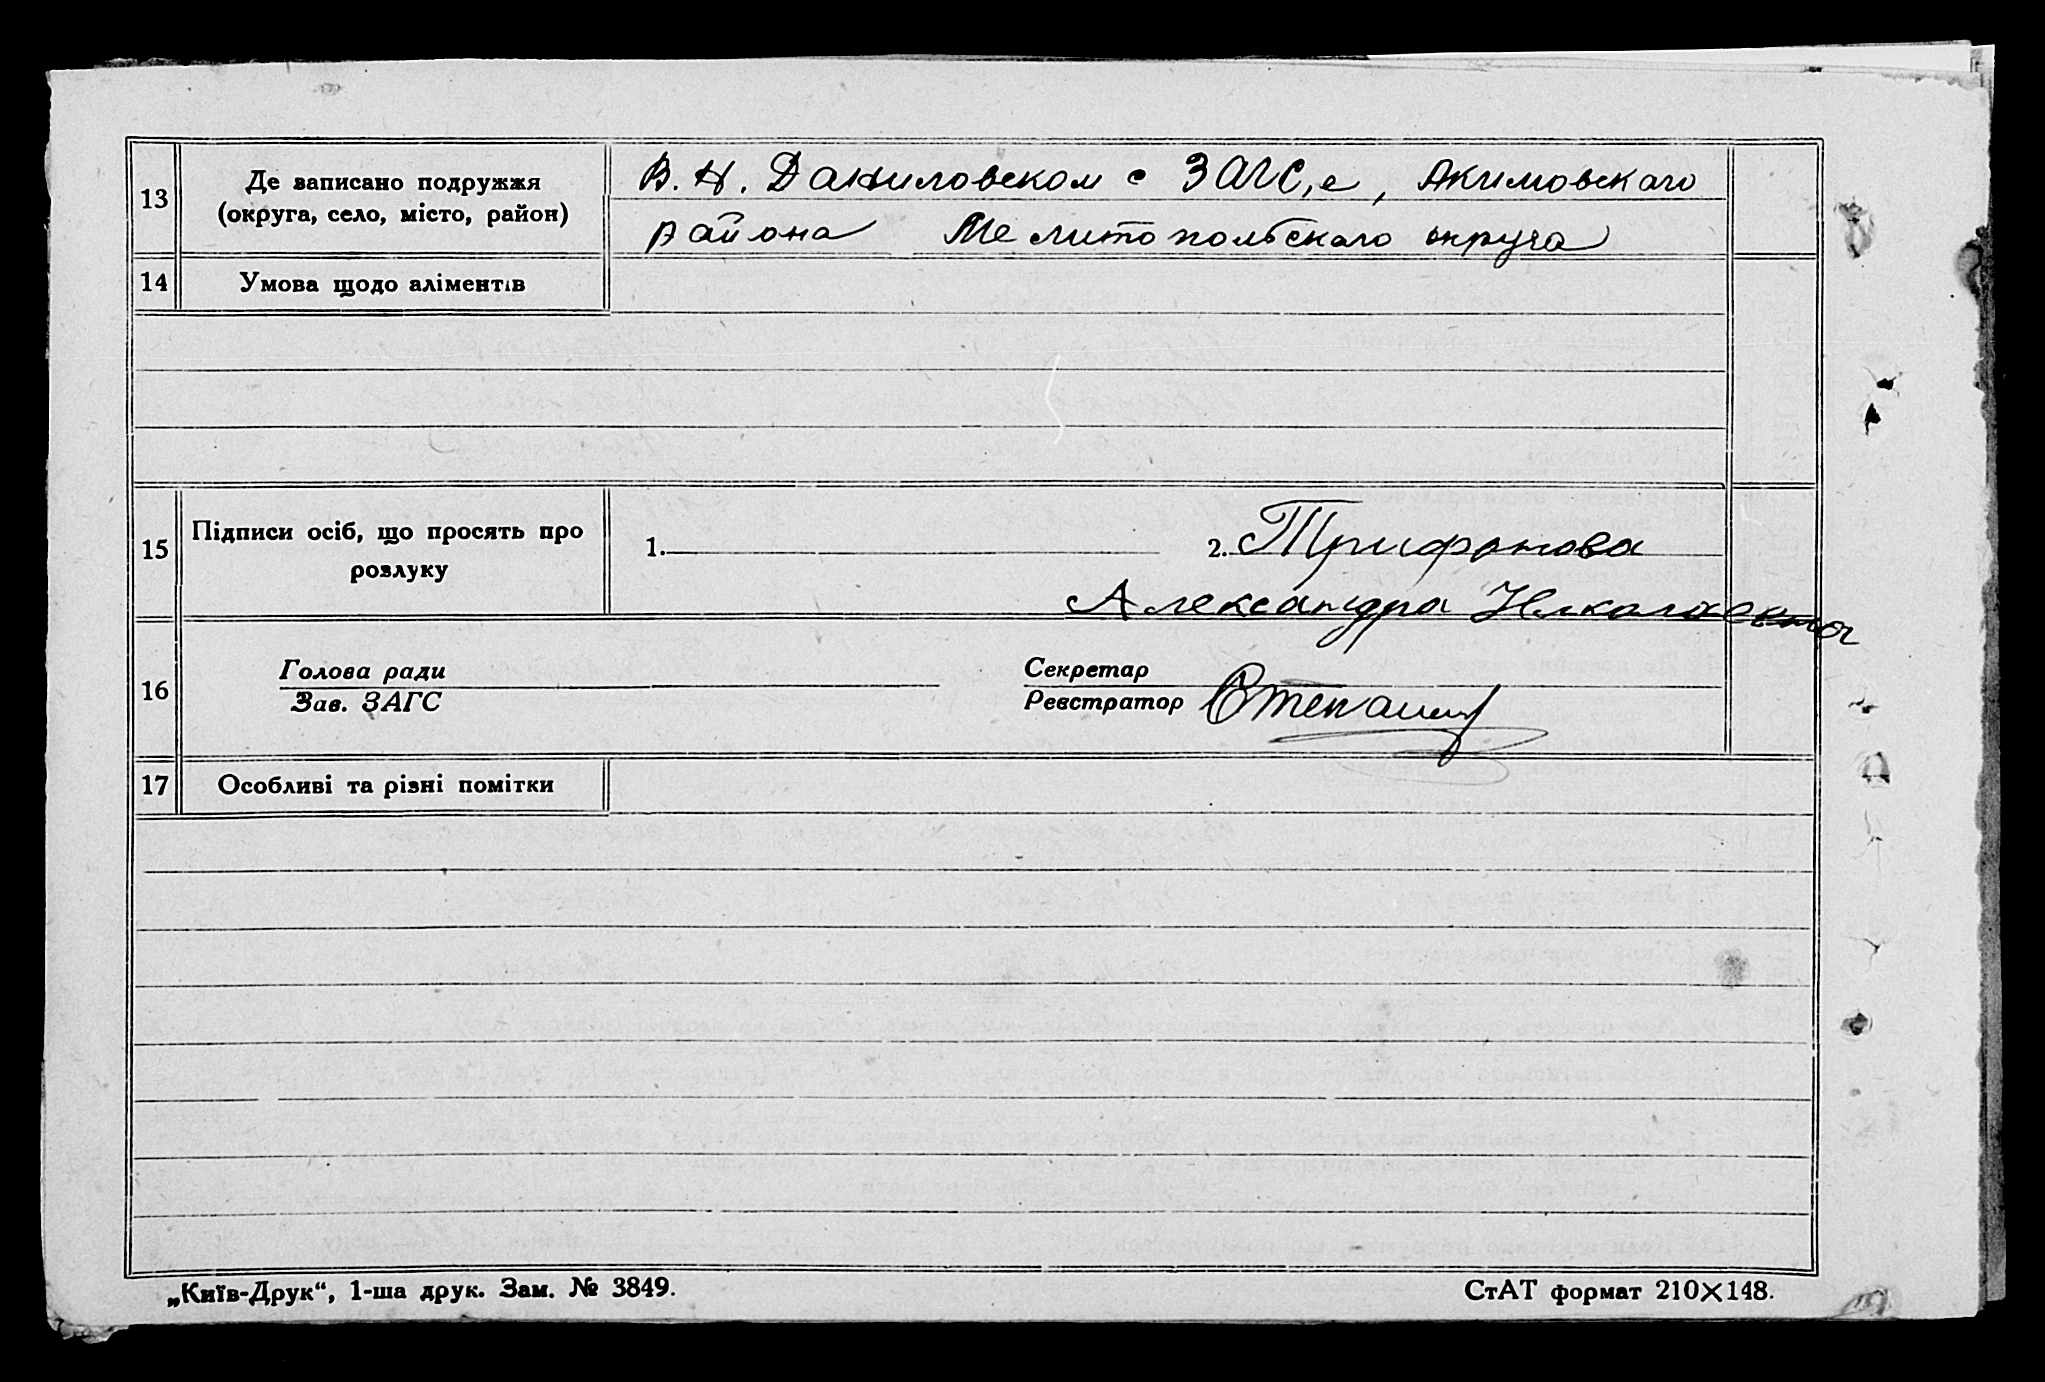 13
Де записано подружжя
(округа, село, місто, район)
В. Н. Даниловском с ЗАГС,е, Акимовскаго
района Мелитопольскаго округа
14
Умова щодо аліментів
15
Підписи осіб, що просять про
розлуку
1.
2. Трифонова
Александра Николаевна
16
Голова ради
Зав. ЗАГС
Секретар
Реєстратор
17
Особливі та різні помітки
„Київ-Друк“, 1-ша друк. Зам. № 3849.
СтАТ формат 210×148.